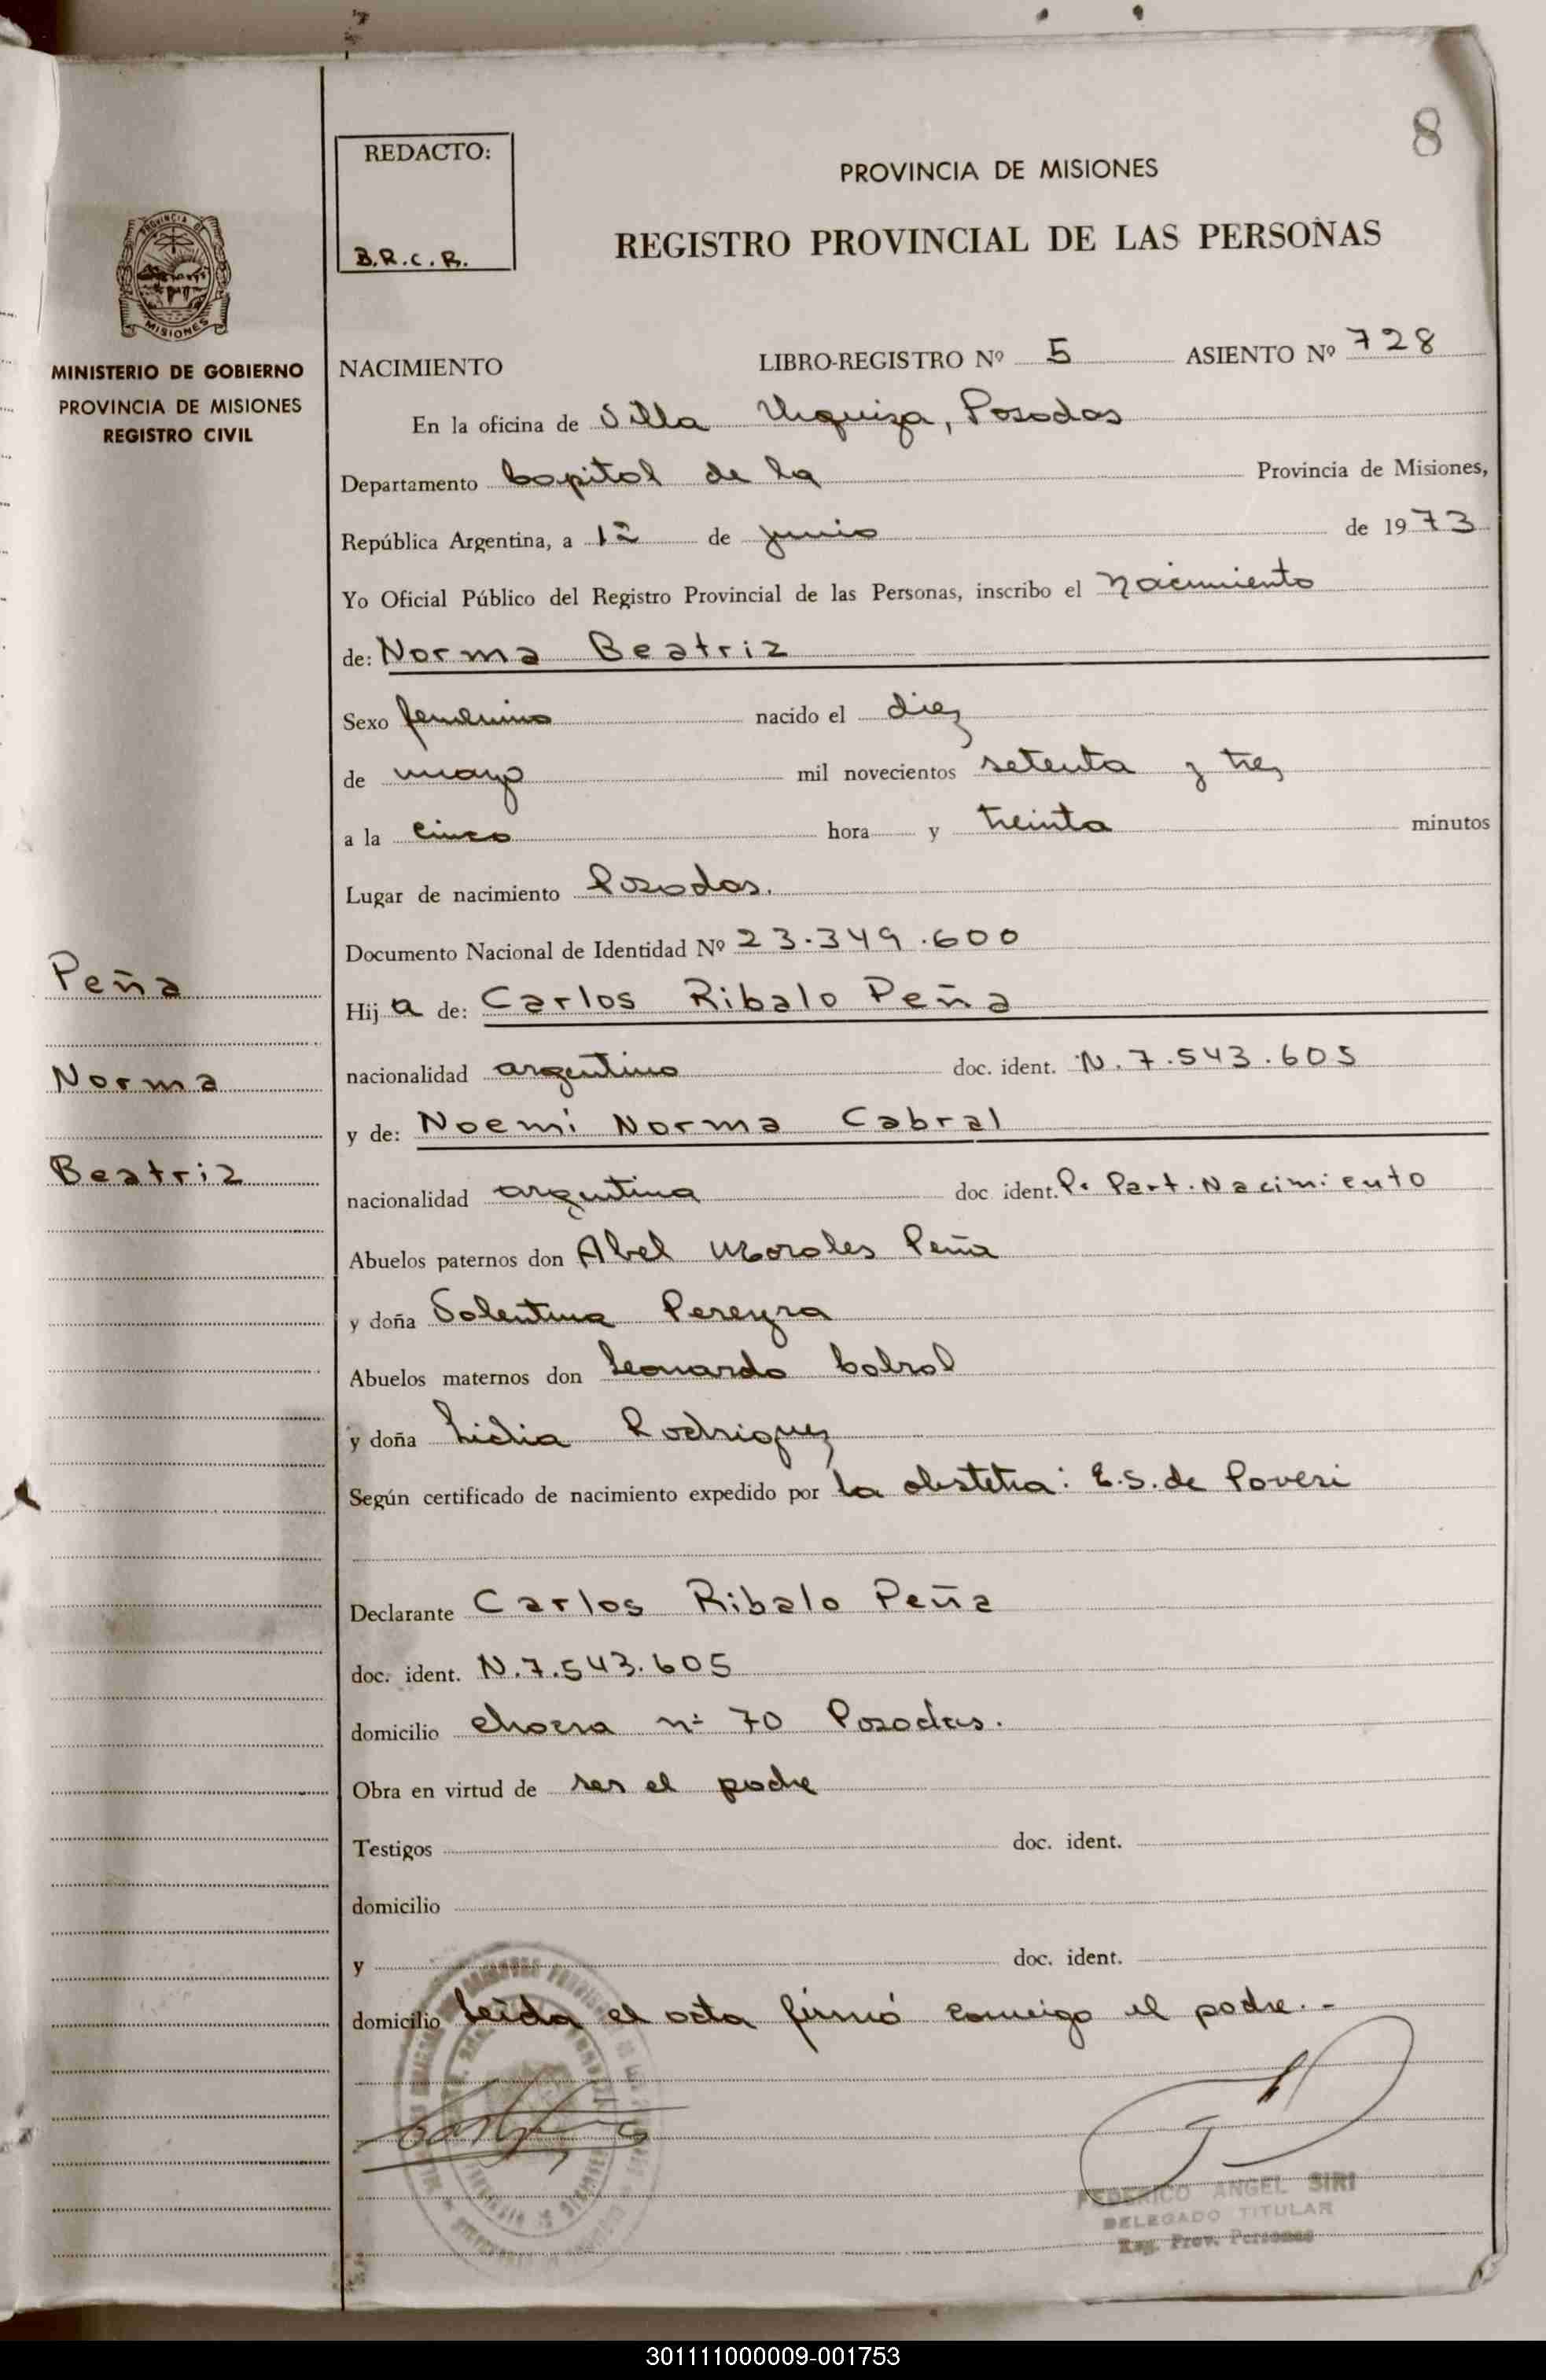 8
REDACTO:
B.R.C.R.
PROVINCIA DE MISIONES
REGISTRO PROVINCIAL DE LAS PERSONAS
MISIONES
MINISTERIO DE GOBIERNO
PROVINCIA DE MISIONES
REGISTRO CIVIL
NACIMIENTO LIBRO-REGISTRO Nº 5 ASIENTO Nº 728
En la oficina de Villa Urquiza, Posadas
Departamento Capital de la Provincia de Misiones,
República Argentina, a 12 de junio de 1973
Yo Oficial Público del Registro Provincial de las Personas, inscribo el nacimiento
de: Norma Beatriz
Sexo femenino nacido el diez
de mayo mil novecientos setenta y tres
a la cinco hora y treinta minutos
Lugar de nacimiento Posadas.
Documento Nacional de Identidad Nº 23.349.600
Peña
Norma
Beatriz
Hija de: Carlos Ribalo Peña
nacionalidad argentino doc. ident. N. 7.543.605
y de: Noemi Norma Cabral
nacionalidad argentina doc ident. P. Part. Nacimiento
Abuelos paternos don Abel Morales Peña
y doña Solentina Pereyra
Abuelos maternos don Leonardo Cabral
y doña Lidia Rodriguez
Según certificado de nacimiento expedido por la obstetra: E.S. de Poveri
Declarante Carlos Ribalo Peña
doc. ident. N. 7.543.605
domicilio chacra nº 70 Posadas.
Obra en virtud de ser el padre
Testigos doc. ident.
domicilio
y doc. ident.
domicilio Leida el acta firmó conmigo el padre.-
FEDERICO ANGEL SIRI
DELEGADO TITULAR
Reg. Prov. Personas
301111000009-001753